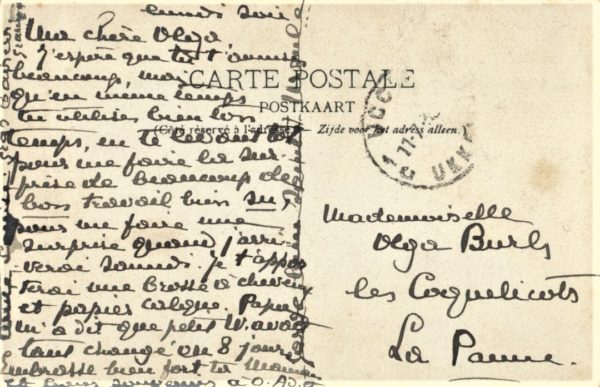 lundi soir
Ma chère Olga
J'espère que tu t'amuses
beaucoup, mais
qu'en même temps
tu utilises bien ton
temps, en te levant tôt
pour me faire la sur-
prise de beaucoup de
bon travail bien su,
pour me faire une
surprise quand j'arri-
verai samedi. Je t'appor-
terai une brosse à cheveux
et papier calque. Papa
m'a dit que petit W. avait
tant changé en 8 jours.
Embrasse bien fort ta Maman
et bons souvenirs à
CARTE POSTALE
POSTKAART
(Côté réservé à l'adresse.) Zijde voor het adress alleen.
UCCLE
UKKEL
Mademoiselle
Olga Burls
les Coquelicots
La Panne.